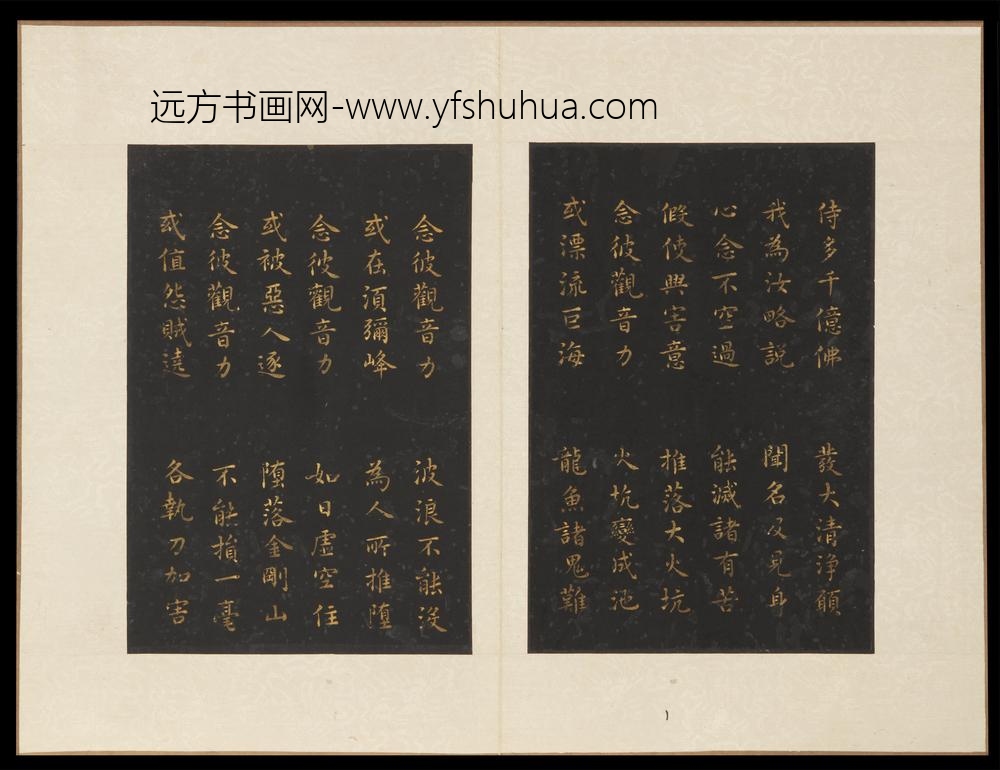 远方书画网-www.yfshuhua.com
侍多千億佛 發大清淨願
我為汝略説 聞名及見身
心念不空過 能滅諸有苦
假使興害意 推落大火坑
念彼觀音力 火坑變成池
或漂流巨海 龍魚諸鬼難
念彼觀音力 波浪不能没
或在湏彌峰 為人所推墮
念彼觀音力 如日虛空住
或被惡人逐 墮落金剛山
念彼觀音力 不能損一毫
或值怨賊遶 各執刀加害